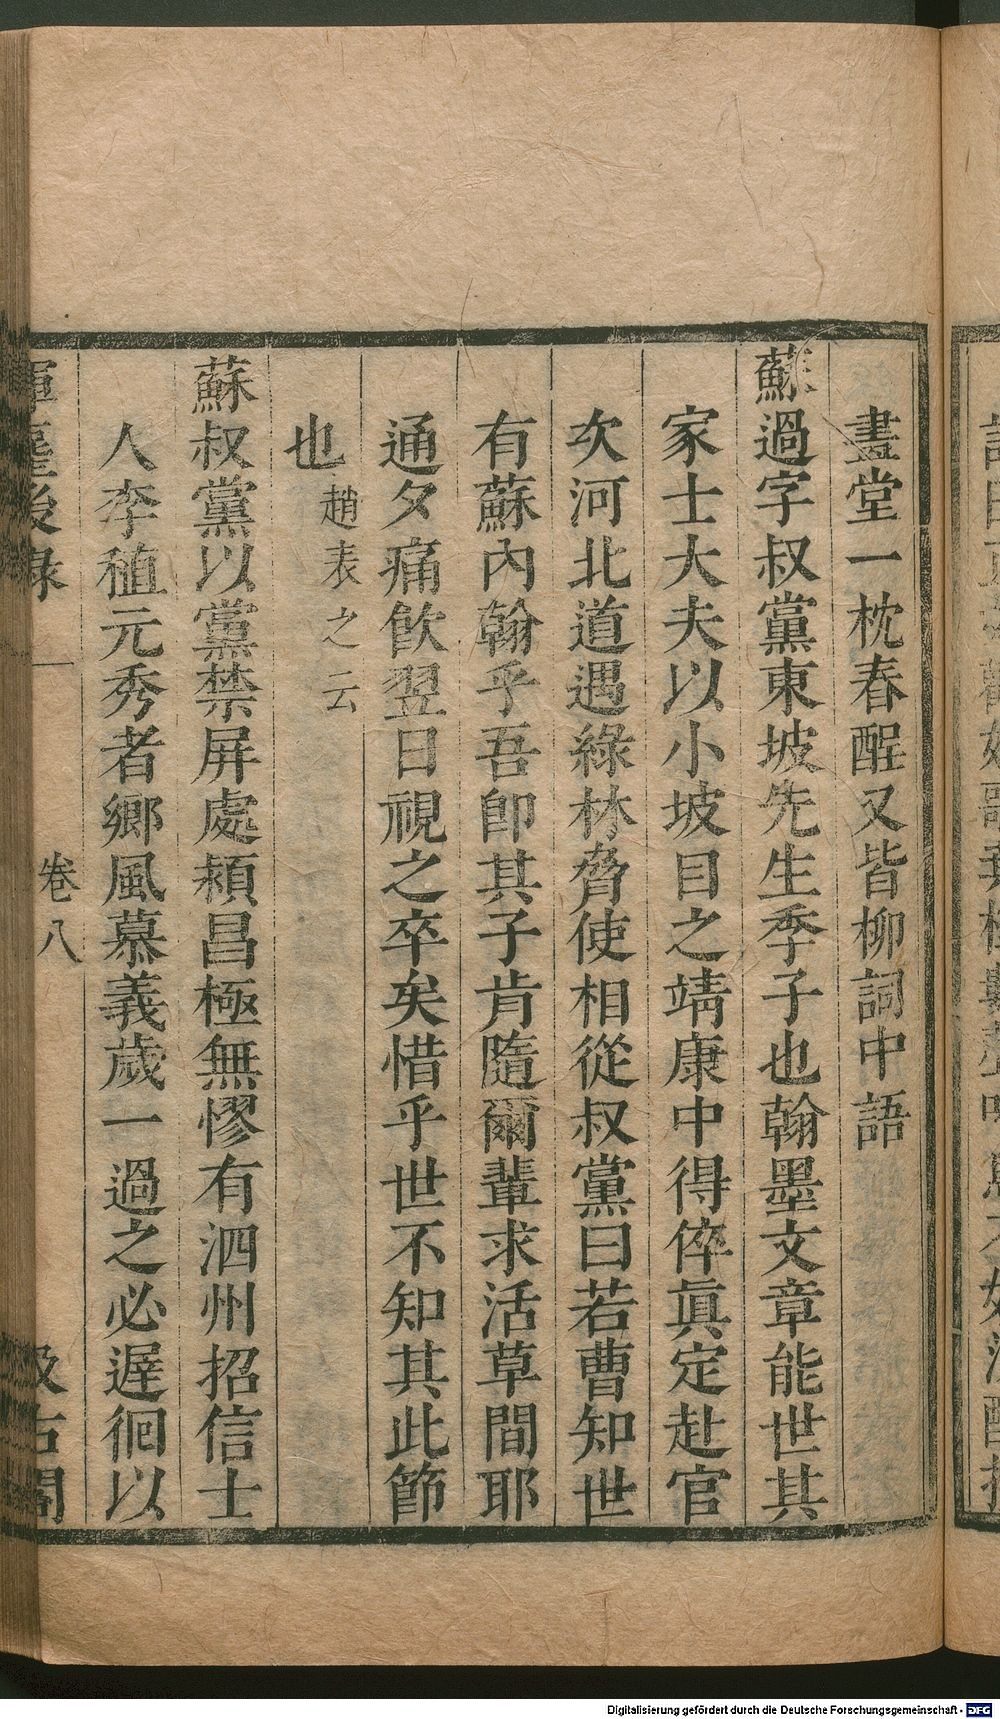 畫堂一枕春酲又皆柳詞中語
蘇過字叔黨東坡先生季子也翰墨文章能世其
家士大夫以小坡目之靖康中得倅眞定赴官
次河北道遇綠林脅使相從叔黨曰若曹知世
有蘇內翰乎吾卽其子肯隨爾輩求活草間耶
通夕痛飮翌日視之卒矣惜乎世不知其此節
也趙表之云
蘇叔黨以黨禁屏處潁昌極無憀有泗州招信士
人李稙元秀者鄉風慕義歲一過之必遲徊以
揮麈後錄 卷八 汲古閣
Digitalisierung gefördert durch die Deutsche Forschungsgemeinschaft - DFG